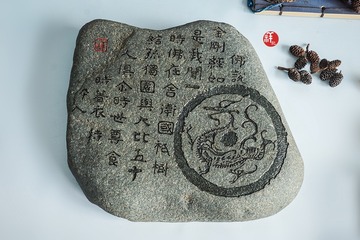 佛說
金剛經如
是我聞一
時佛在舍衛國祗樹
給孤獨園與大比五十
人俱尒時世尊食
時著衣持